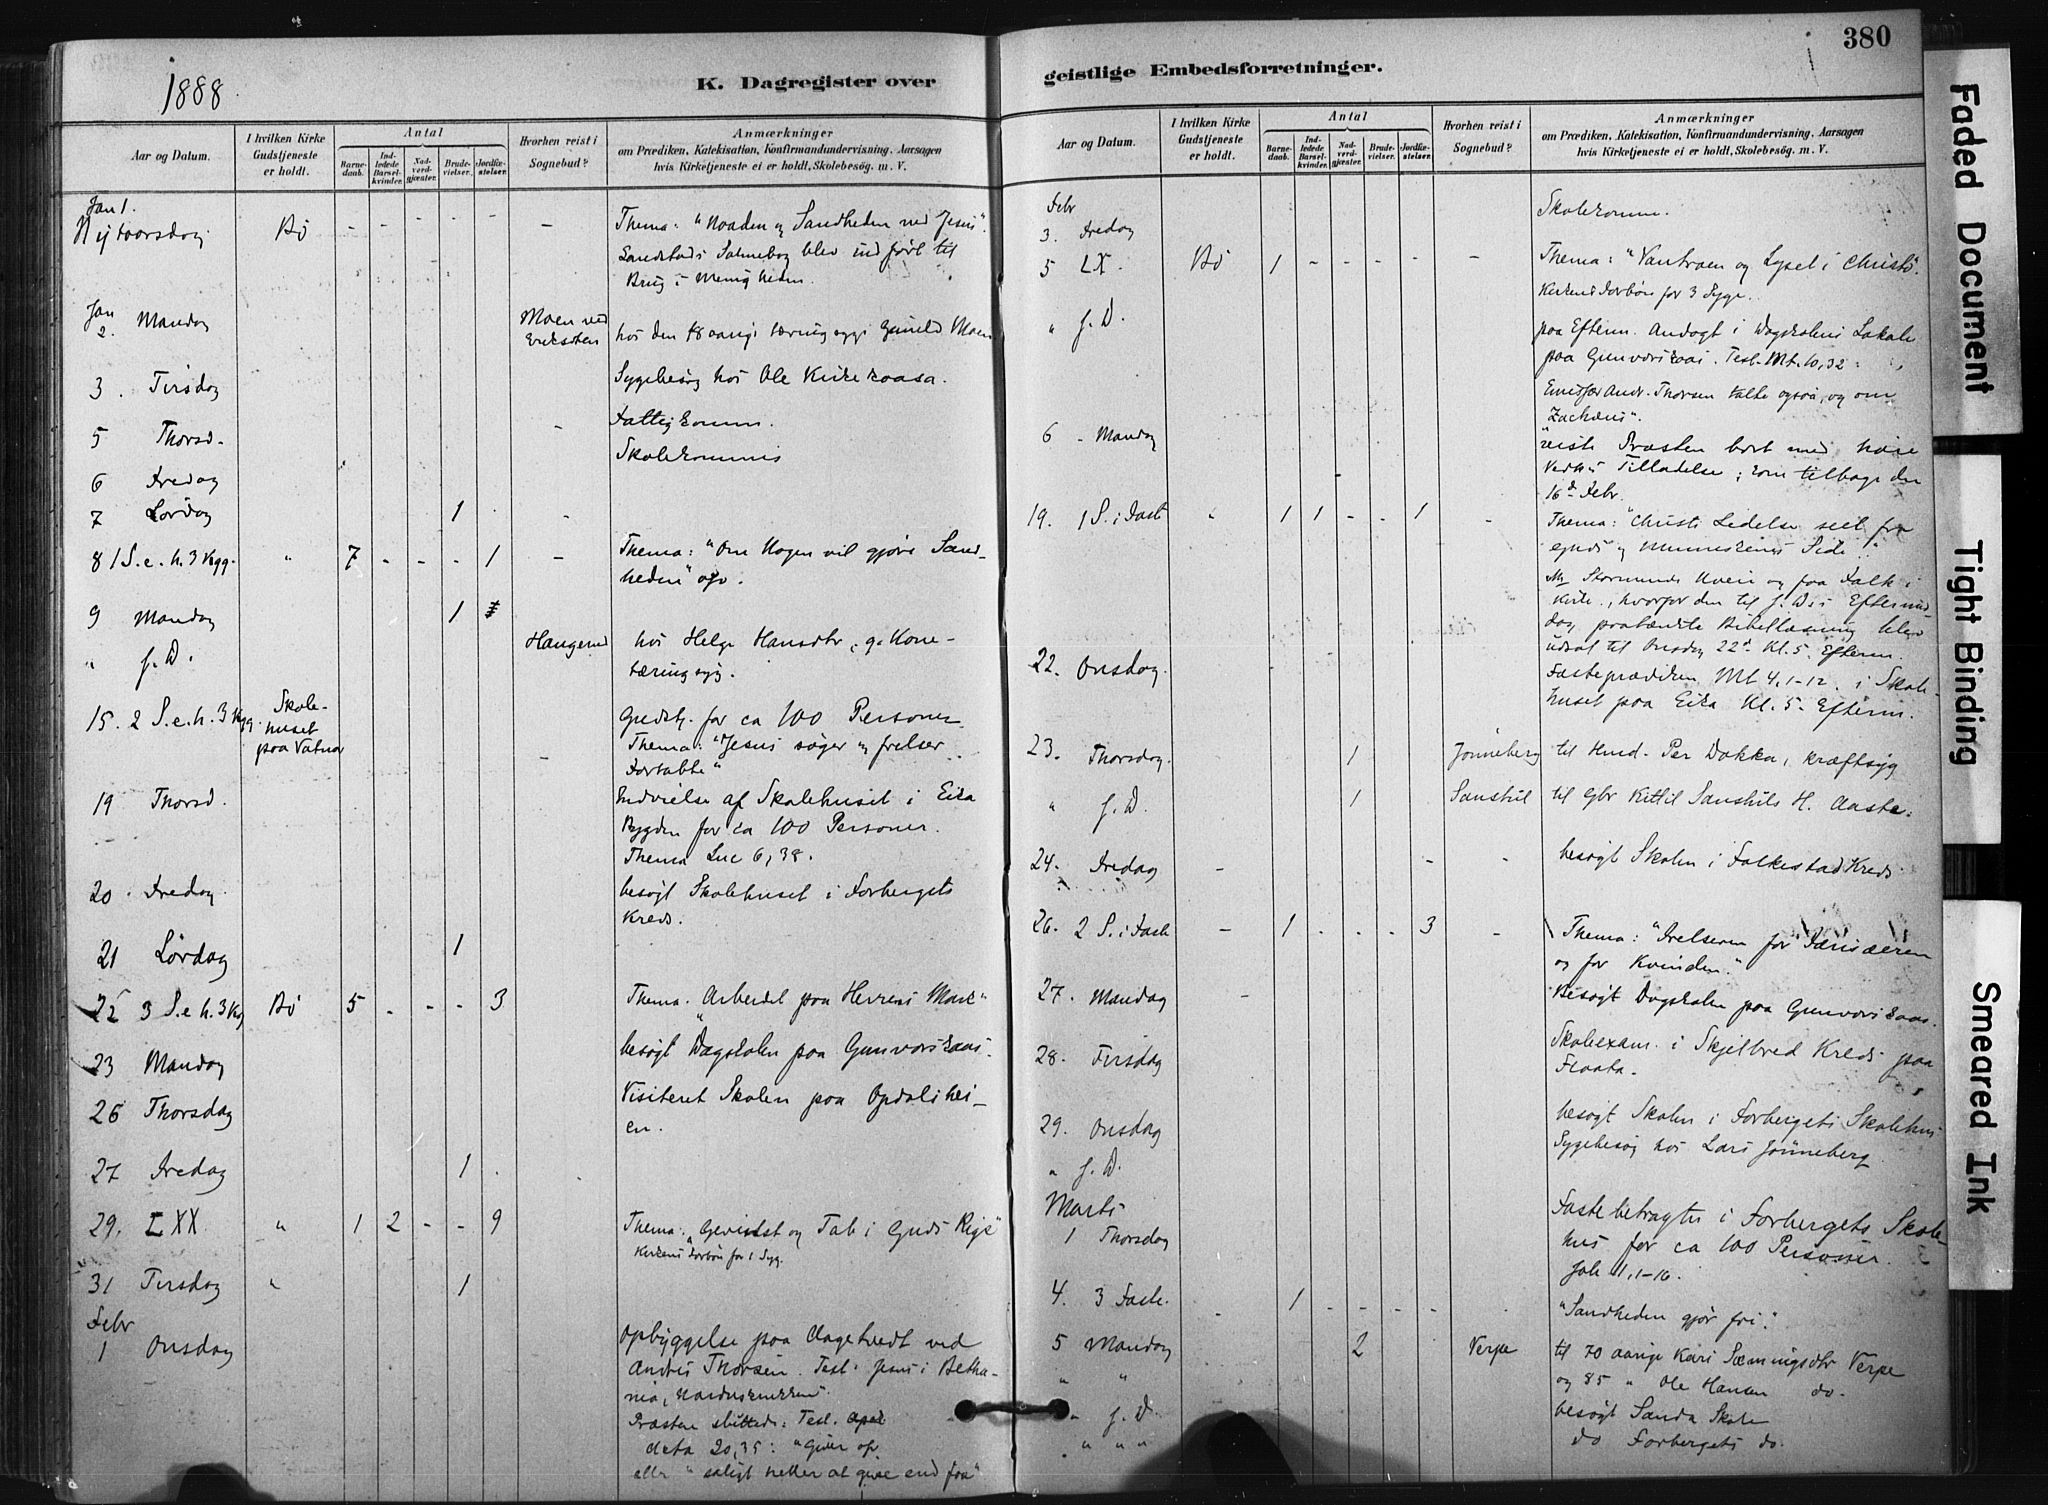 380
1888
K. Dagregister over
geistlige Embedsforretninger.
Aar og Datum.
I hvilken Kirke Gudstjeneste er holdt.
Antal
Barnedaab.
Indledede Barselkvinder.
Nadverdgjæster.
Brudevielser.
Jordfæstelser.
Hvorhen reist i Sognebud?
Anmærkninger
om Prædiken, Katekisation, Konfirmandundervisning. Aarsagen
hvis Kirketjeneste ei er holdt, Skolebesøg. m. V.
Jan 1.
Nytaarsdag Bø - - - - - - Thema: "Naaden og Sandheden ved Jesus".
Landstads Salmebog blev indført til
Brug i Menigheden.
Jan 2. Mandag Moen ved hos den 18 aarige tæringssyge Gunild Moen
3. Tirsdag Sygebesøg hos Ole Kirkeraasa.
5 Thorsd. - Fattigkomm.
Skolekommis
6 Fredag
7 Lørdag 1 -
8 1 S. e. h. 3 Kgg. " 7 - - - 1 - Thema: "Om Nogen vil gjøre Sand-
heden" osv.
9 Mandag 1
" s. D. Haugerud hos Helge Hansdtr, g. Kone -
tæringssyg.
15. 2 S. e. h. 3 Kgg. Skole-
huset
paa Vatnar - Gudstj. for ca 100 Personer
Thema: "Jesus søger og frelser
Fortabte"
19 Thorsd. Indvielse af Skolehuset i Eika
Bygden for ca 100 Personer.
Thema Luc 6, 38.
20. Fredag. besøgt Skolehuset i Forbergets
Kreds.
21 Lørdag 1
22 3 S. e. h. 3 Kg Bø 5 - - - 3 Thema: "Arbeidet paa Herrens Mark"
23 Mandag besøgt Dagskolen paa Gunvorskaas.
26 Thorsdag Visiteret Skolen paa Opdalshei-
en.
27 Fredag 1
29. LXX. " 1 2 - - 9 Thema: "Gevinst og Tab i Guds Rige"
Kirkens Forbøn for 1 Syg.
31 Tirsdag " 1
Febr
1 Onsdag Opbyggelse paa Aagetvedt ved
Andres Thorsen. Text: Jesus i Betha-
nia, Narduskrukken.
Præsten sluttede: Text.
20,35: "Giver og
eller "saligt heller at give end faa"
Aar og Datum.
I hvilken Kirke Gudstjeneste er holdt.
Antal
Barnedaab.
Indledede Barselkvinder.
Nadverdgjæster.
Brudevielser.
Jordfæstelser.
Hvorhen reist i Sognebud?
Anmærkninger
om Prædiken, Katekisation, Konfirmandundervisning, Aarsagen
hvis Kirketjeneste ei er holdt, Skolebesøg. m. V.
Febr
3. Fredag Skolekomm.
5 LX. Bø 1 - - - - - Thema: "Vantroen og Lyset i Christo".
Kirkens Forbøn for 3 Syge.
" s. D. paa Efterm. Andagt i Dagskolens Lokale
paa Gunvorskaas. Text. Mt. 10, 32
Andr. Thorsen talte ogsaa, og om
Zachæus".
6 - Mandag reiste Præsten bort med høie
Vedk's Tilladelse; kom tilbage den
16de Febr.
19. 1 S. i Fast " 1 1 - - 1 - Thema: "Christi Ledelse seet fra
Guds og Menneskenes Side".
Stormende Uveir og faa Folk i
Kirke, hvorfor den til s. D.s Eftermid
dag paatænkte Bibellæsning blev
udsat til Onsdag 22de Kl. 5. Efterm.
22. Onsdag. Fasteprædiken Mt 4,1-12. i Skole-
huset paa Eika Kl. 5. Efterm.
23. Thorsdag. 1 Jønneberg til Hmd. Per Dokka, kræftsyg
" s. D. 1 Sanshil til Gbr Kittil Sanshils H. Aaste.
24. Fredag - - - besøgt Skolen i Folkestad Kreds
26. 2 S. i Fast - 1 - - - 3 - Thema: "Frelseren for Farisæeren
og for Kvinden."
27. Mandag - Besøgt Dagskolen paa Gunvorskaas.
28. Tirsdag Skoleexam. i Skjelbred Kreds paa
Flaata.
29. Onsdag besøgt Skolen i Forbergets Skolehus
" s. D. Sygebesøg hos Lars Jønneberg
Marts
1 Thorsdag Fastebetragtn i Forbergets Skole-
hus for ca 100 Personer.
Joh 1,1-16.
4. 3 Faste. - 1 - - - - "Sandheden gjør fri."
5 Mandag 2 Verpe til 70 aarige Kari Sæmingsdtr Verpe
" " og 85 " Ole Hansen do.
" s. D. besøgt Sanda Skole
" " " do Forbergets do.
Faded Document
Tight Binding
Smeared Ink